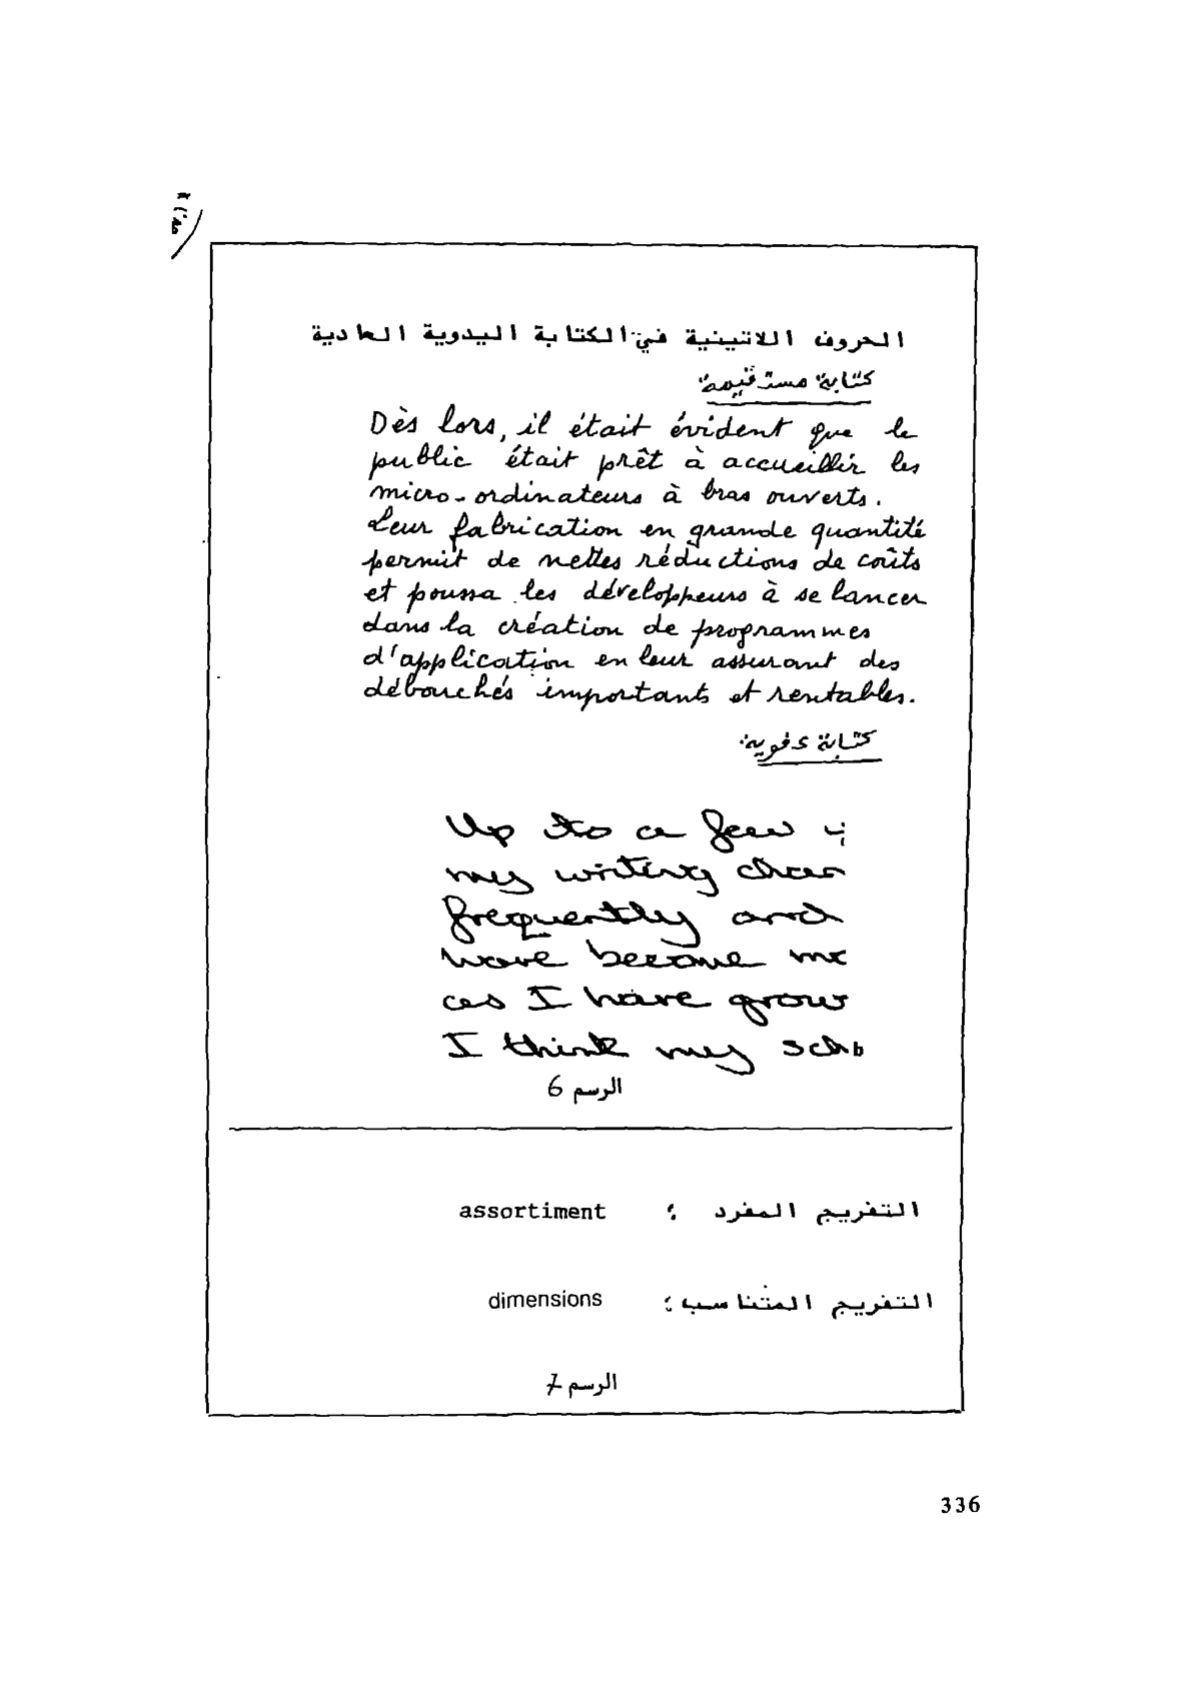 الحروف اللاتينية في الكتابة اليدوية العادية
كتابة مستقيمة
Dès lors, il était évident que le
public était prêt à accueillir les
micro-ordinateurs à bras ouverts.
Leur fabrication en grande quantité
permit de nettes réductions de coûts
et poussa les développeurs à se lancer
dans la création de programmes
d'application en leur assurant des
débouchés importants et rentables.
كتابة عفوية
Up to a few
my writing chan
frequently and
have become mo
as I have grow
I think my scho
الرسم 6
التفريج المفرد : assortiment
التفريج المتناسب : dimensions
الرسم 7
336